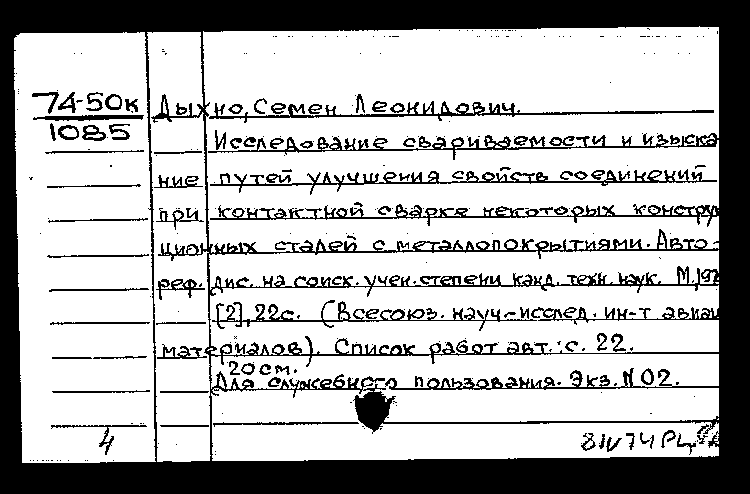 74-50к
1085
Дыхно, Семен Леонидович.
Исследование свариваемости и изыска
ние путей улучшения свойств соединений
при контактной сварке некоторых констру
ционных сталей с металлопокрытиями. Авто-
реф. дис. на соиск. учен. степени канд. техн. наук. М, 197
[2], 22с. (Всесоюз. науч-исслед. ин-т авиац
материалов). Список работ авт.: с. 22.
20 см.
Для служебного пользования. Экз. N 02.
4
8 IV 74 РЦ